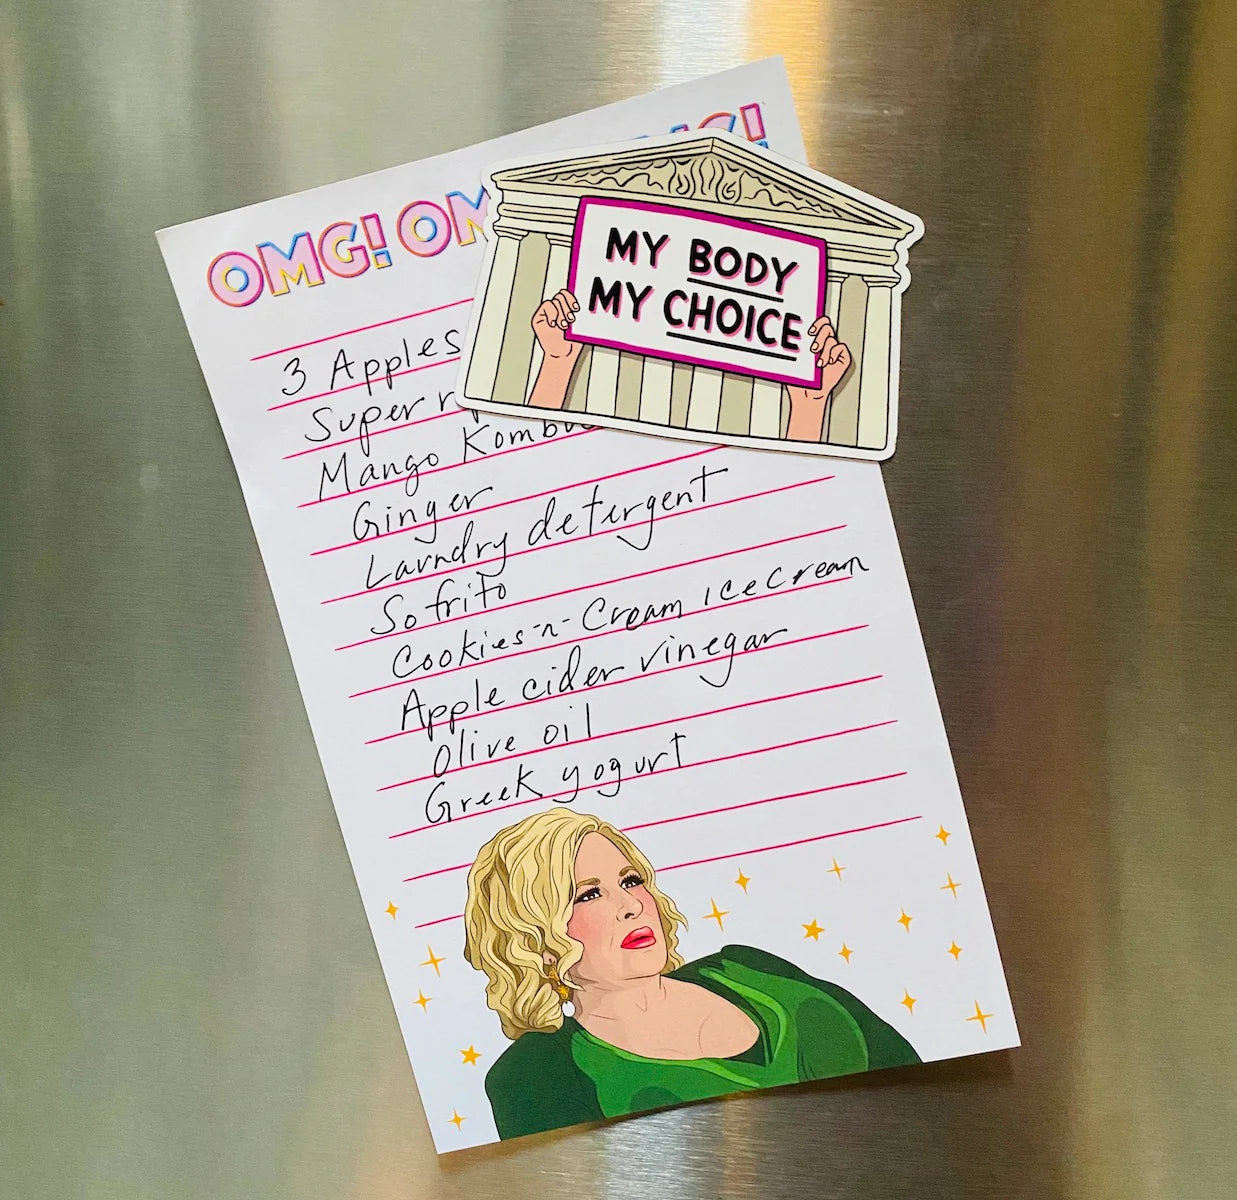 OMG! OM
G!
MY BODY
MY CHOICE
3 Apples
Super
Mango Kombu
Ginger
Laundry detergent
Sofrito
Cookies-n-Cream ice cream
Apple cider vinegar
Olive oil
Greek yogurt